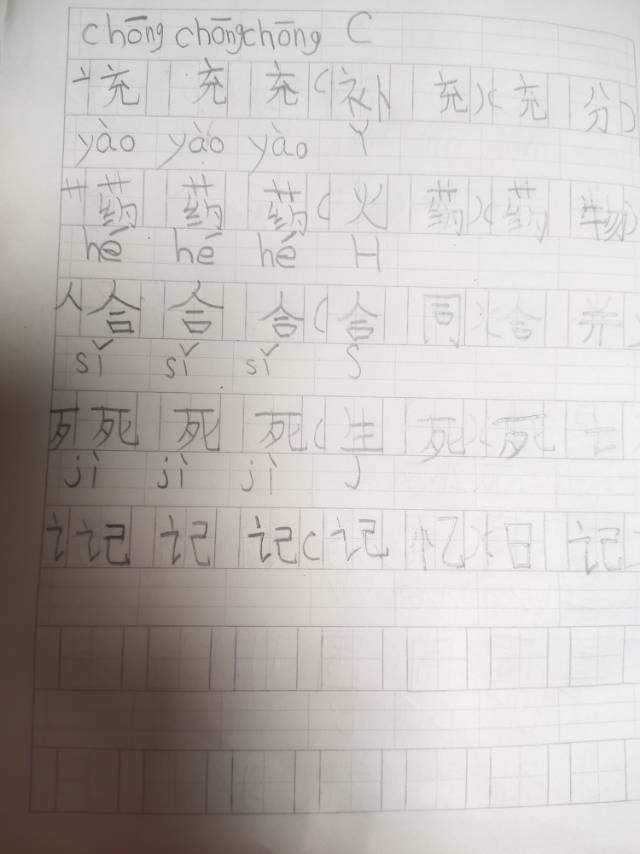 chōng chōng chōng C
亠 充 充 充 (补 充) (充 分)
yào yào yào Y
艹 药 药 药 (火 药) (药 物)
hé hé hé H
人 合 合 合 (合 同) (合 并)
sǐ sǐ sǐ S
歹 死 死 死 (生 死) (死 亡)
jì jì jì J
讠 记 记 记 (记 忆) (日 记)